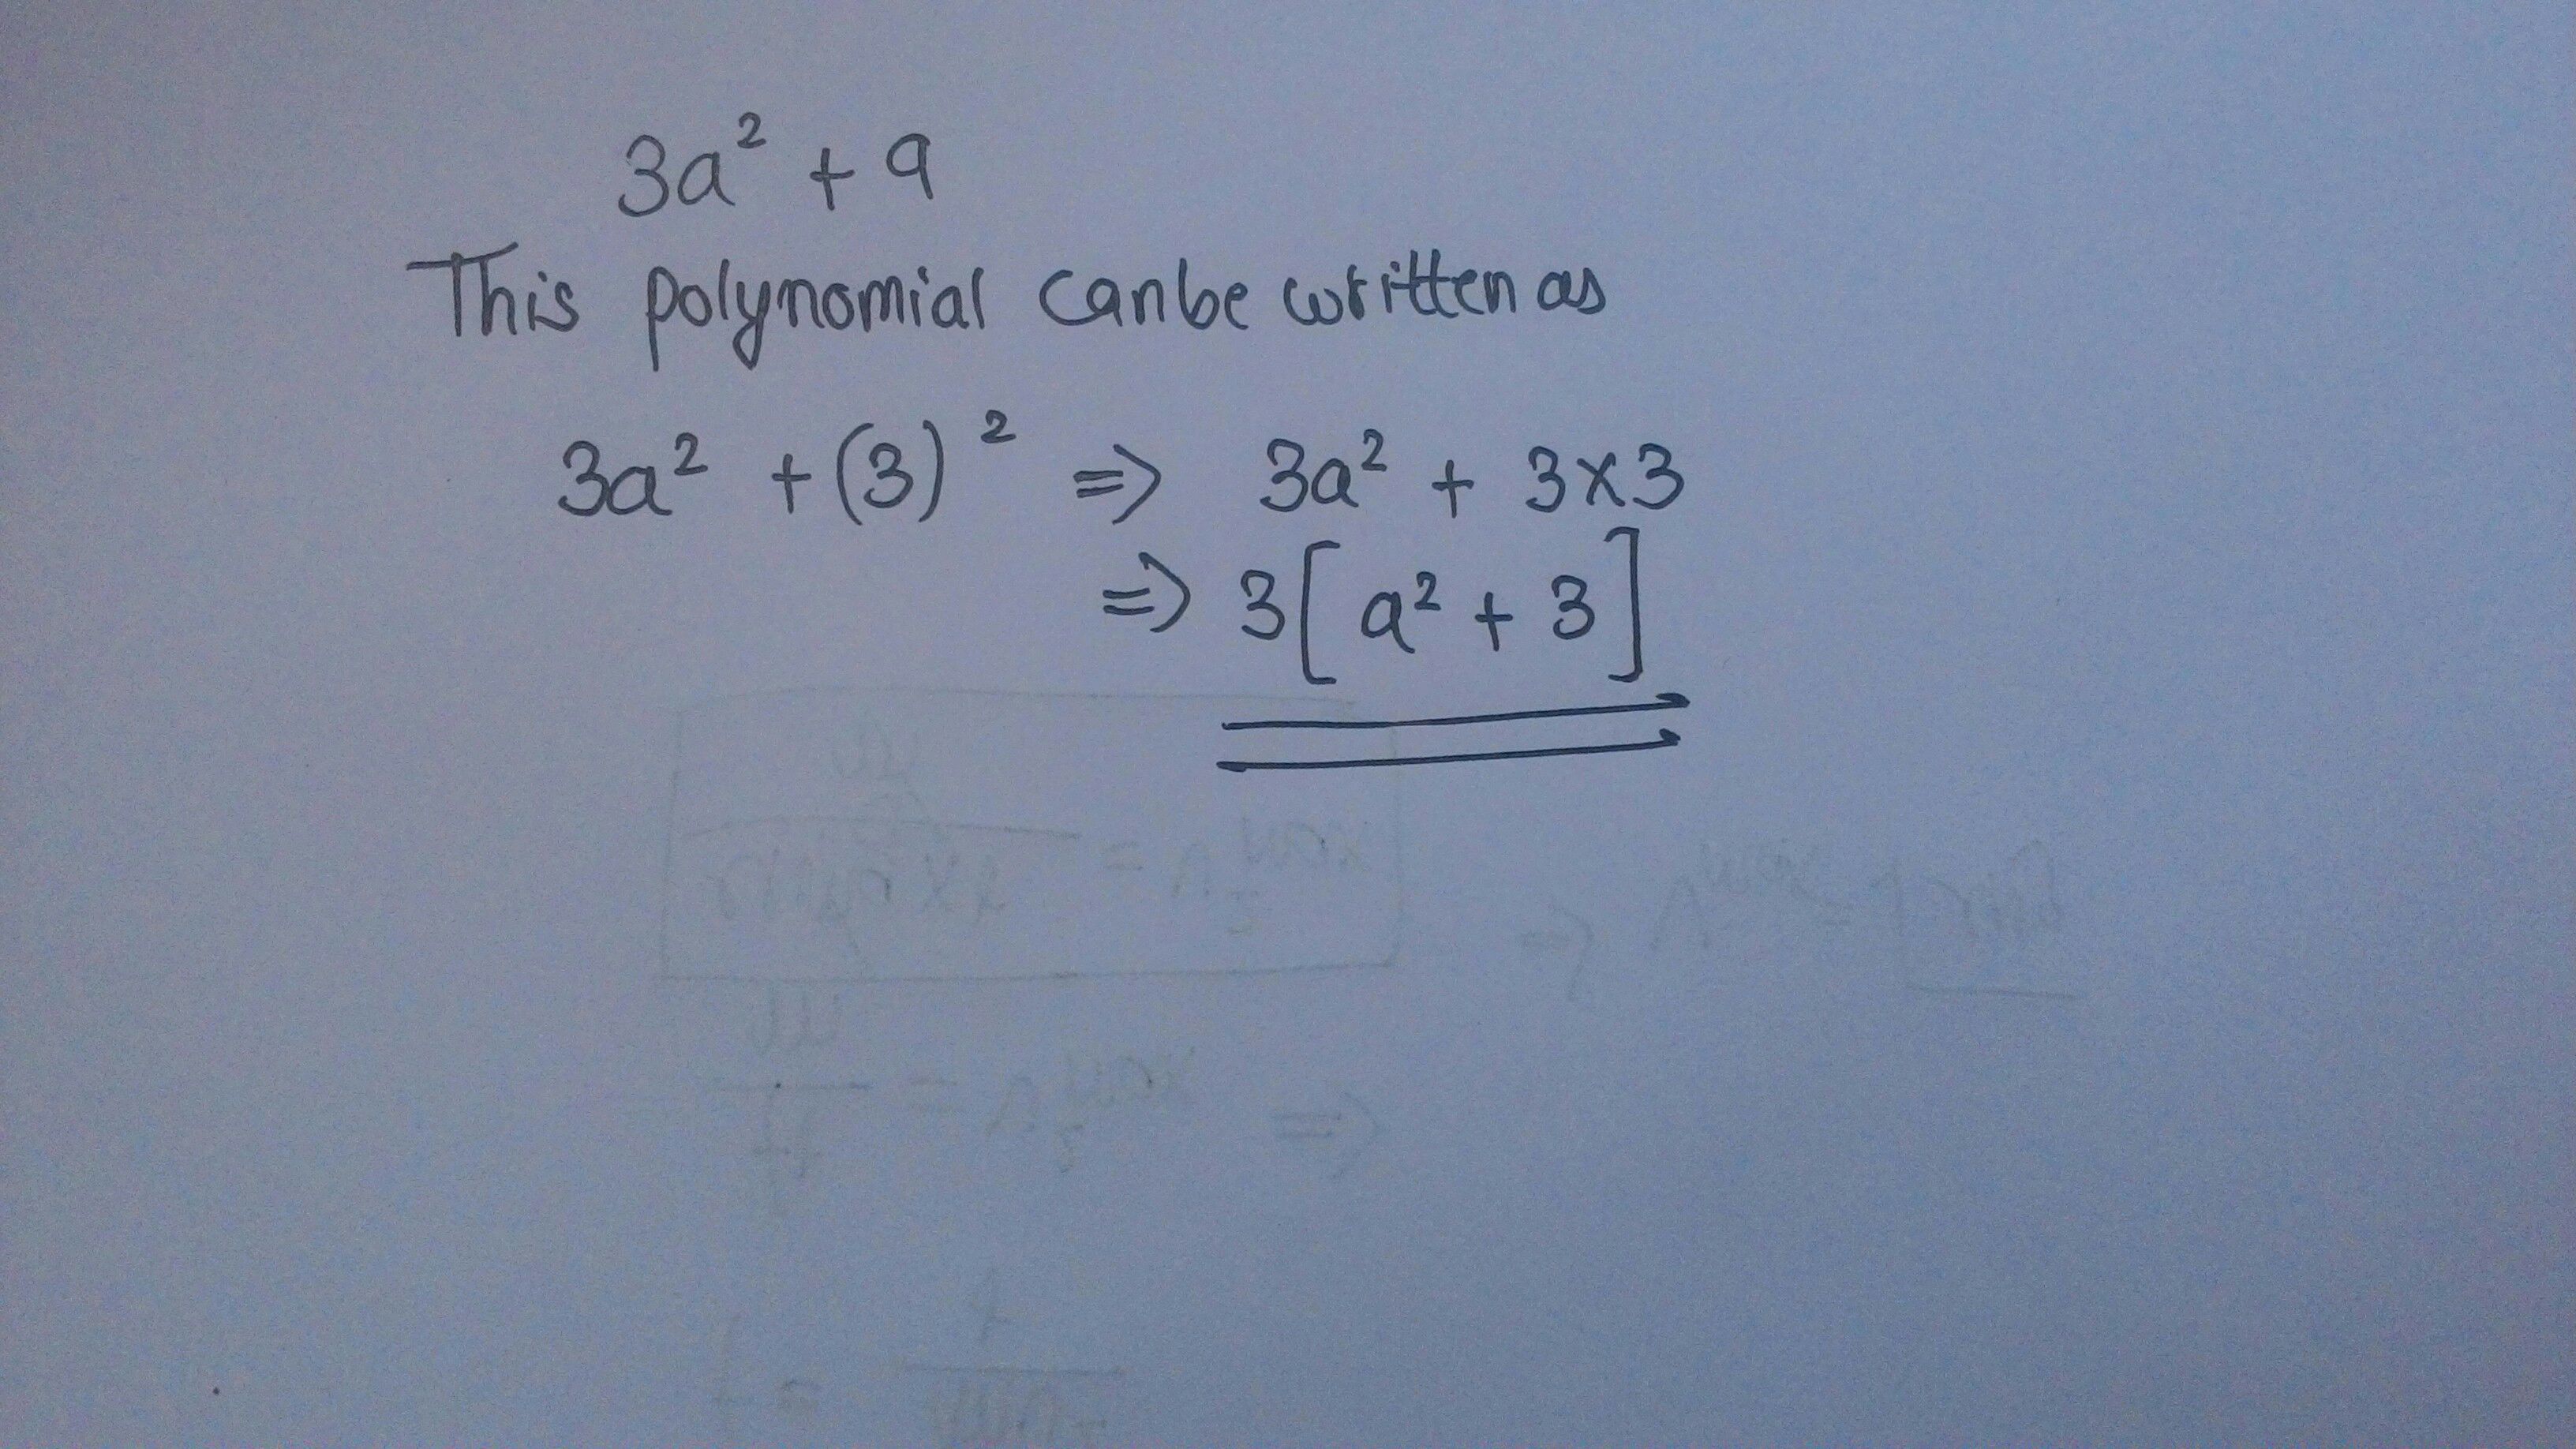 3a² + 9
This polynomial canbe written as
3a² + (3)² => 3a² + 3×3
=> 3[a² + 3]